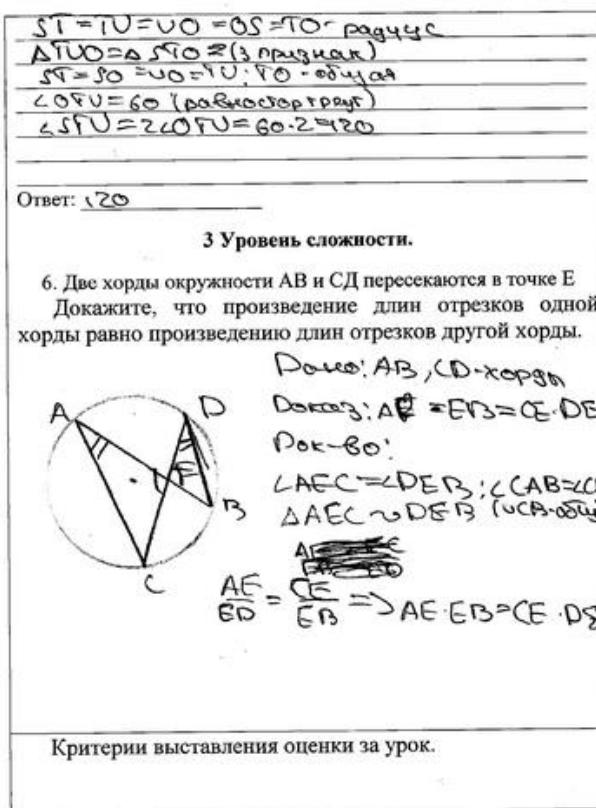 ST = TU = UO = OS = TO - радиус
ΔTUO = ΔSTO = (3 признак)
ST = SO = UO = TU; TO - общая
∠OTU = 60 (равностор треуг)
∠STU = 2∠OTU = 60·2 = 120
Ответ: 120
3 Уровень сложности.
6. Две хорды окружности АВ и СД пересекаются в точке Е
Докажите, что произведение длин отрезков одной
хорды равно произведению длин отрезков другой хорды.
Дано: AB, CD - хорды
Доказ: AE = EB = CE · DE
Док-во:
∠AEC = ∠DEB; ∠CAB = ∠C
ΔAEC ~ DEB (∪CB - общ
AE/ED = CE/EB => AE · EB = CE · DE
A
D
E
B
C
Критерии выставления оценки за урок.